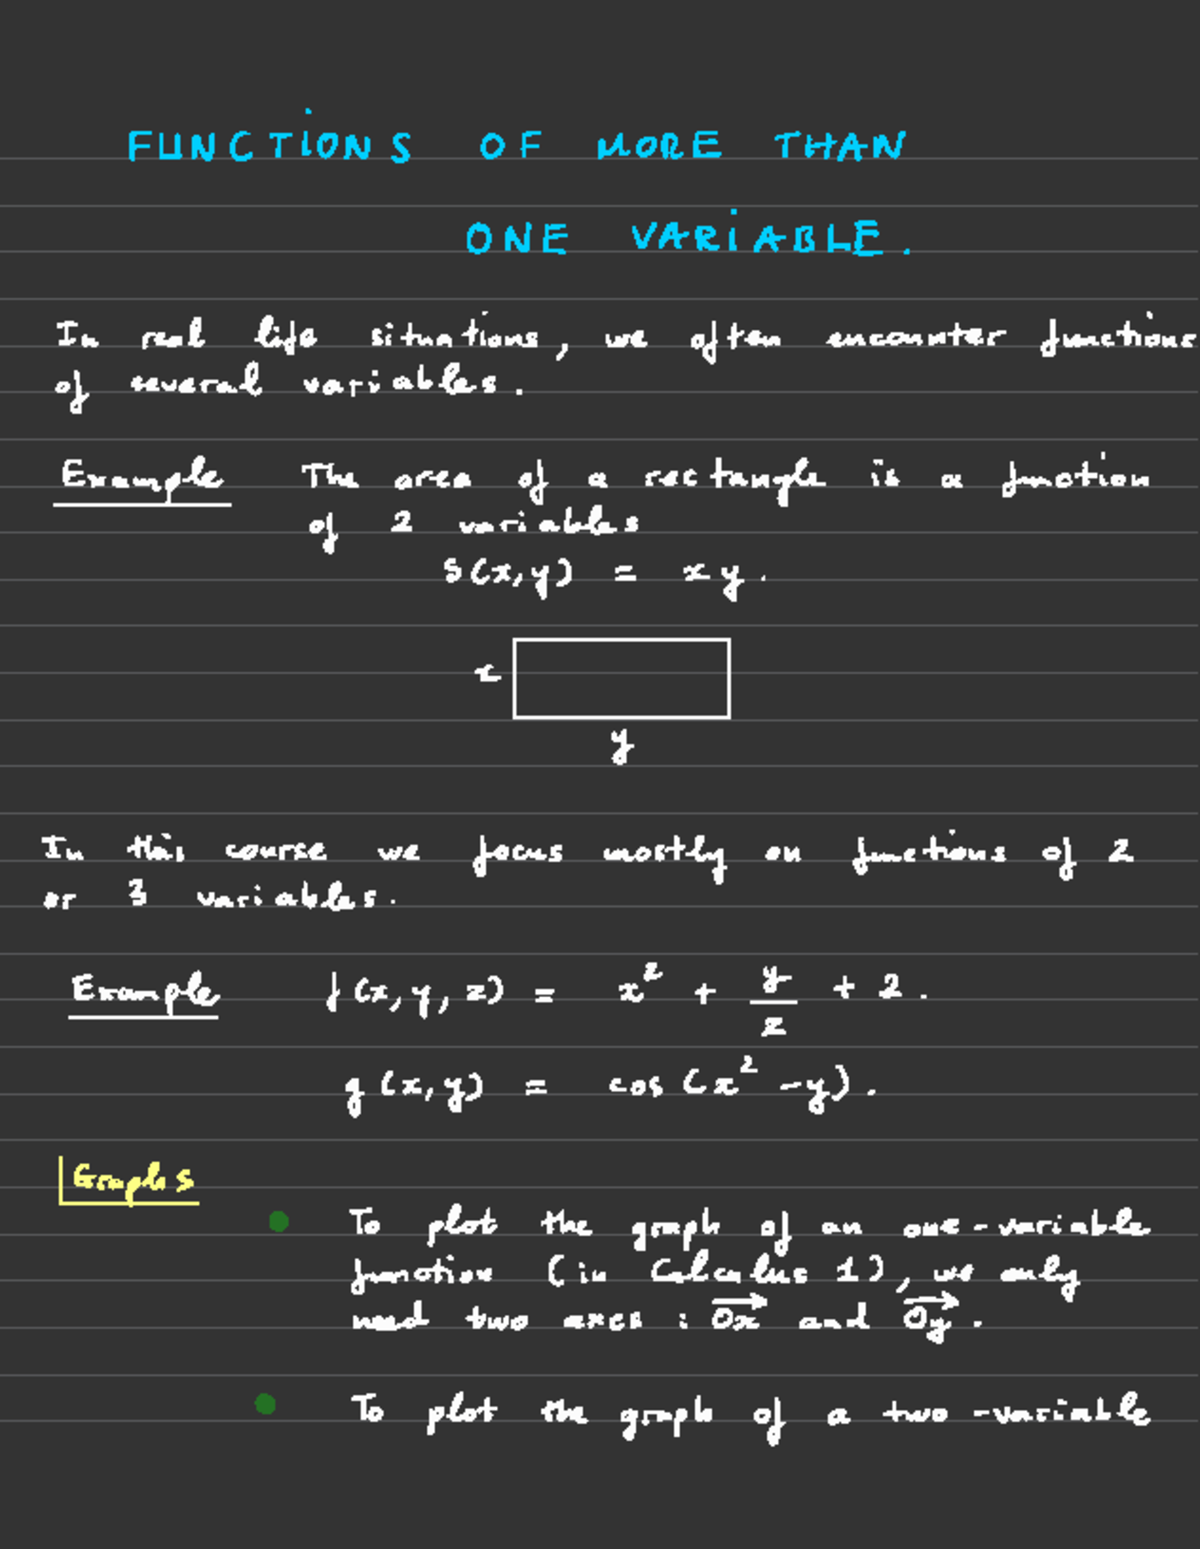 FUNCTIONS OF MORE THAN
ONE VARIABLE.
In real life situations, we often encounter functions
of several variables.
Example The area of a rectangle is a function
of 2 variables
S(x,y) = xy.
x
y
In this course we focus mostly on functions of 2
or 3 variables.
Example f(x,y,z) = x² + y/z + 2.
g(x,y) = cos(x² - y).
Graphs
• To plot the graph of an one-variable
function (in Calculus 1), we only
need two axes : \overrightarrow{Ox} and \overrightarrow{Oy}.
• To plot the graph of a two-variable